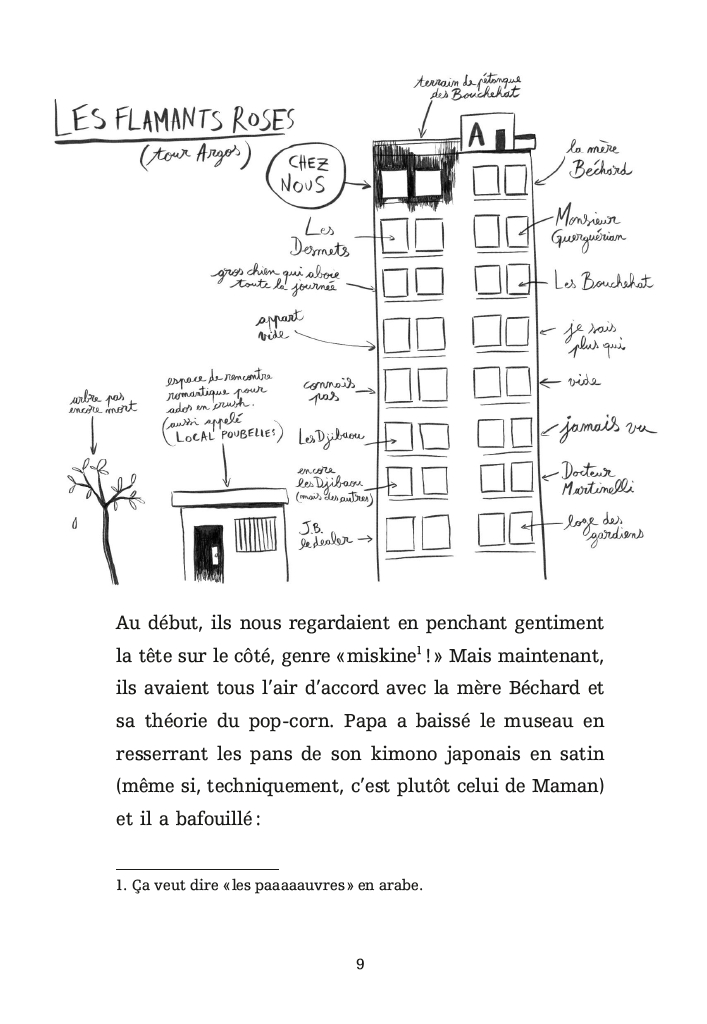 terrain de pétanque
des Bouchehat
LES FLAMANTS ROSES
(tour Argos)
A
CHEZ
NOUS
la mère
Béchard
Les
Desmets
Monsieur
Guerguérian
gros chien qui aboie
toute la journée
Les Bouchehat
appart
vide
je sais
plus qui
espace de rencontre
romantique pour
ados en crush.
(aussi appelé
LOCAL POUBELLES)
arbre pas
encore mort
connais
pas
vide
Les Djibaou
jamais vu
encore
les Djibaou
(mais des autres)
Docteur
Martinelli
J.B.
le dealer
loge des
gardiens
Au début, ils nous regardaient en penchant gentiment
la tête sur le côté, genre « miskine¹ ! » Mais maintenant,
ils avaient tous l’air d’accord avec la mère Béchard et
sa théorie du pop-corn. Papa a baissé le museau en
resserrant les pans de son kimono japonais en satin
(même si, techniquement, c’est plutôt celui de Maman)
et il a bafouillé :
1. Ça veut dire « les paaaaauvres » en arabe.
9